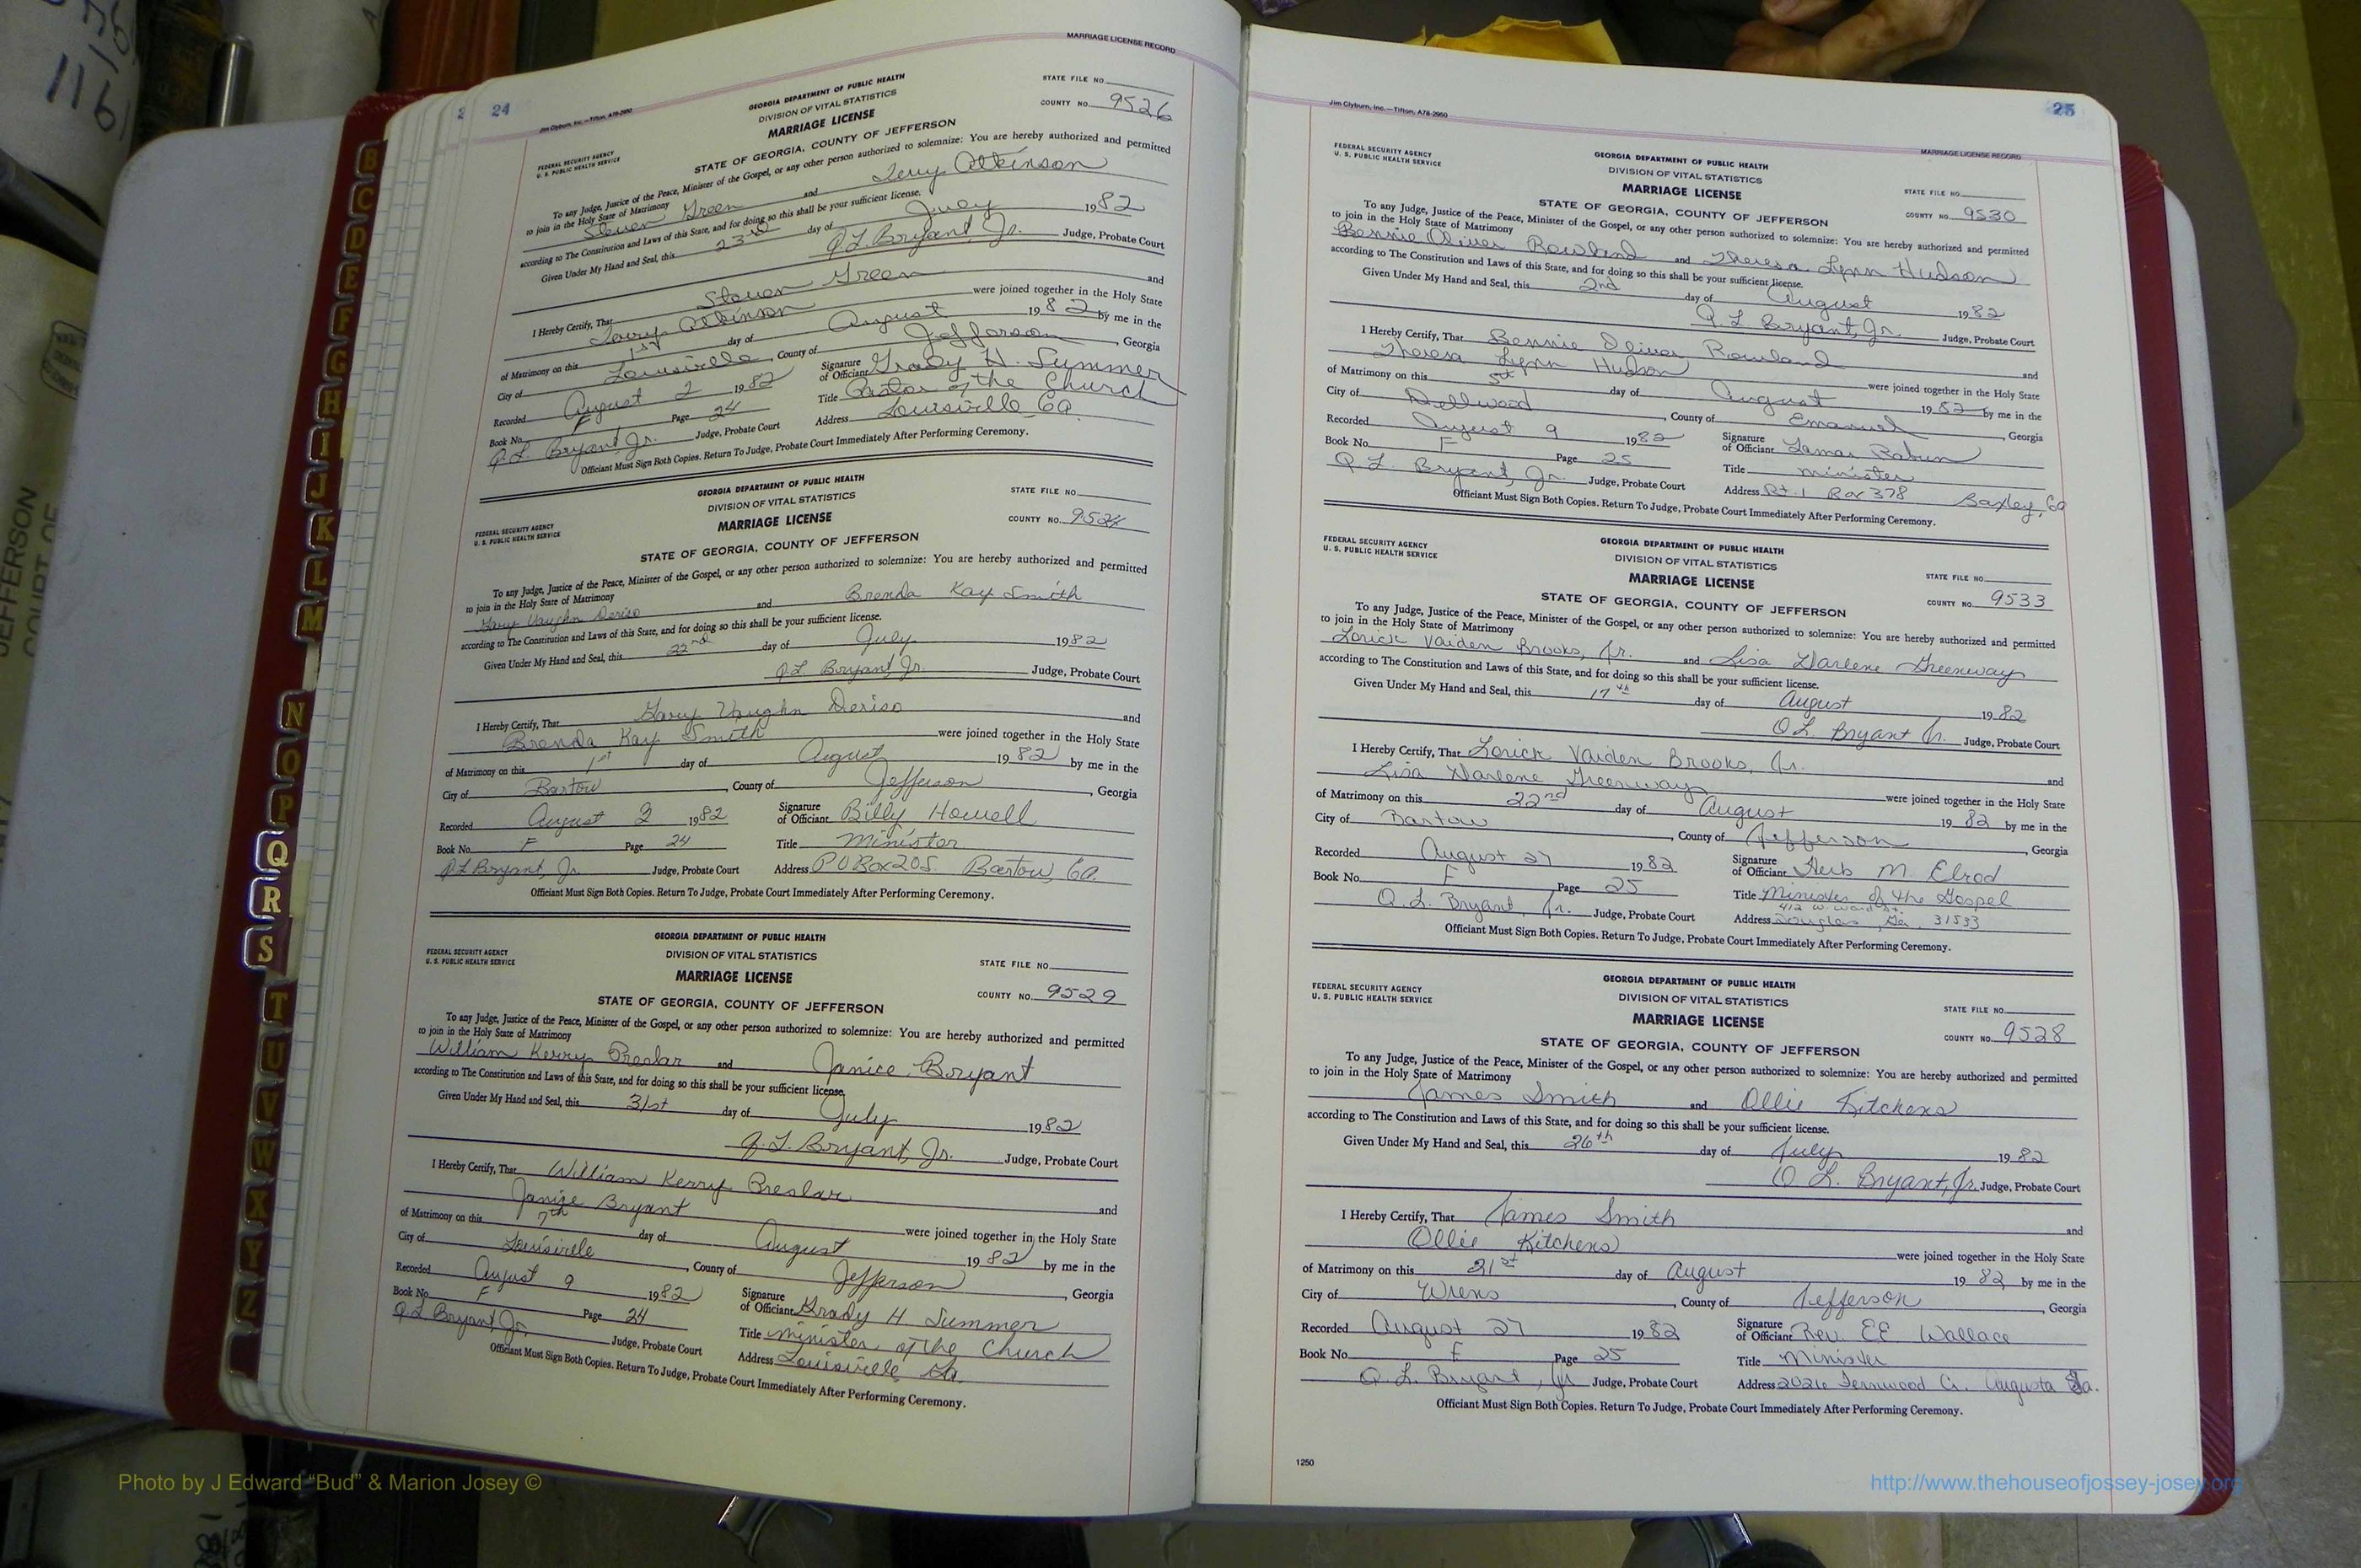 24
Jim Clyburn, Inc.—Tifton, A78-2950
MARRIAGE LICENSE RECORD
FEDERAL SECURITY AGENCY
U. S. PUBLIC HEALTH SERVICE
GEORGIA DEPARTMENT OF PUBLIC HEALTH
DIVISION OF VITAL STATISTICS
MARRIAGE LICENSE
STATE FILE NO.
COUNTY NO. 9526
STATE OF GEORGIA, COUNTY OF JEFFERSON
To any Judge, Justice of the Peace, Minister of the Gospel, or any other person authorized to solemnize: You are hereby authorized and permitted
to join in the Holy State of Matrimony
Steven Green and Terry Atkinson
according to The Constitution and Laws of this State, and for doing so this shall be your sufficient license.
Given Under My Hand and Seal, this 23rd day of July 1982
Q.L. Bryant, Jr. Judge, Probate Court
I Hereby Certify, That Steven Green and
Terry Atkinson were joined together in the Holy State
of Matrimony on this 1st day of August 1982 by me in the
City of Louisville, County of Jefferson, Georgia
Recorded August 2 1982 Signature of Officiant Grady H. Summer
Book No. F Page 24 Title Pastor of the Church
Q.L. Bryant, Jr. Judge, Probate Court Address Louisville Ga.
Officiant Must Sign Both Copies. Return To Judge, Probate Court Immediately After Performing Ceremony.
FEDERAL SECURITY AGENCY
U. S. PUBLIC HEALTH SERVICE
GEORGIA DEPARTMENT OF PUBLIC HEALTH
DIVISION OF VITAL STATISTICS
MARRIAGE LICENSE
STATE FILE NO.
COUNTY NO. 9524
STATE OF GEORGIA, COUNTY OF JEFFERSON
To any Judge, Justice of the Peace, Minister of the Gospel, or any other person authorized to solemnize: You are hereby authorized and permitted
to join in the Holy State of Matrimony
Gary Vaughn Deriso and Brenda Kay Smith
according to The Constitution and Laws of this State, and for doing so this shall be your sufficient license.
Given Under My Hand and Seal, this 22nd day of July 1982
Q.L. Bryant Jr. Judge, Probate Court
I Hereby Certify, That Gary Vaughn Deriso and
Brenda Kay Smith were joined together in the Holy State
of Matrimony on this 1st day of August 1982 by me in the
City of Bartow, County of Jefferson, Georgia
Recorded August 3 1982 Signature of Officiant Billy Howell
Book No. F Page 24 Title Minister
Q.L. Bryant, Jr. Judge, Probate Court Address P O Box 205 Bartow, Ga.
Officiant Must Sign Both Copies. Return To Judge, Probate Court Immediately After Performing Ceremony.
FEDERAL SECURITY AGENCY
U. S. PUBLIC HEALTH SERVICE
GEORGIA DEPARTMENT OF PUBLIC HEALTH
DIVISION OF VITAL STATISTICS
MARRIAGE LICENSE
STATE FILE NO.
COUNTY NO. 9529
STATE OF GEORGIA, COUNTY OF JEFFERSON
To any Judge, Justice of the Peace, Minister of the Gospel, or any other person authorized to solemnize: You are hereby authorized and permitted
to join in the Holy State of Matrimony
William Kerry Breslar and Janice Bryant
according to The Constitution and Laws of this State, and for doing so this shall be your sufficient license.
Given Under My Hand and Seal, this 31st day of July 1982
Q.L. Bryant, Jr. Judge, Probate Court
I Hereby Certify, That William Kerry Breslar and
Janice Bryant were joined together in the Holy State
of Matrimony on this 7th day of August 1982 by me in the
City of Louisville, County of Jefferson, Georgia
Recorded August 9 1982 Signature of Officiant Grady H Summer
Book No. F Page 24 Title minister of the Church
Q.L. Bryant, Jr. Judge, Probate Court Address Louisville Ga.
Officiant Must Sign Both Copies. Return To Judge, Probate Court Immediately After Performing Ceremony.
Jim Clyburn, Inc.—Tifton, A78-2950
25
MARRIAGE LICENSE RECORD
FEDERAL SECURITY AGENCY
U. S. PUBLIC HEALTH SERVICE
GEORGIA DEPARTMENT OF PUBLIC HEALTH
DIVISION OF VITAL STATISTICS
MARRIAGE LICENSE
STATE FILE NO.
COUNTY NO. 9530
STATE OF GEORGIA, COUNTY OF JEFFERSON
To any Judge, Justice of the Peace, Minister of the Gospel, or any other person authorized to solemnize: You are hereby authorized and permitted
to join in the Holy State of Matrimony
Bennie Oliver Rowland and Theresa Lynn Hudson
according to The Constitution and Laws of this State, and for doing so this shall be your sufficient license.
Given Under My Hand and Seal, this 2nd day of August 1982
Q. L. Bryant, Jr. Judge, Probate Court
I Hereby Certify, That Bennie Oliver Rowland and
Theresa Lynn Hudson were joined together in the Holy State
of Matrimony on this 5th day of August 1982 by me in the
City of Dellwood, County of Emanuel, Georgia
Recorded August 9 1982 Signature of Officiant Lamar Rabun
Book No. F Page 25 Title minister
Q. L. Bryant, Jr. Judge, Probate Court Address Rt. 1 Box 378 Baxley, Ga
Officiant Must Sign Both Copies. Return To Judge, Probate Court Immediately After Performing Ceremony.
FEDERAL SECURITY AGENCY
U. S. PUBLIC HEALTH SERVICE
GEORGIA DEPARTMENT OF PUBLIC HEALTH
DIVISION OF VITAL STATISTICS
MARRIAGE LICENSE
STATE FILE NO.
COUNTY NO. 9533
STATE OF GEORGIA, COUNTY OF JEFFERSON
To any Judge, Justice of the Peace, Minister of the Gospel, or any other person authorized to solemnize: You are hereby authorized and permitted
to join in the Holy State of Matrimony
Lorick Vaiden Brooks, Jr. and Lisa Darlene Greenway
according to The Constitution and Laws of this State, and for doing so this shall be your sufficient license.
Given Under My Hand and Seal, this 17th day of August 1982
Q.L. Bryant Jr. Judge, Probate Court
I Hereby Certify, That Lorick Vaiden Brooks, Jr. and
Lisa Darlene Greenway were joined together in the Holy State
of Matrimony on this 22nd day of August 1982 by me in the
City of Bartow, County of Jefferson, Georgia
Recorded August 27 1982 Signature of Officiant Herb M. Elrod
Book No. F Page 25 Title Minister of the Gospel
412 W. Ward St.
Q. L. Bryant, Jr. Judge, Probate Court Address Douglas, Ga. 31533
Officiant Must Sign Both Copies. Return To Judge, Probate Court Immediately After Performing Ceremony.
FEDERAL SECURITY AGENCY
U. S. PUBLIC HEALTH SERVICE
GEORGIA DEPARTMENT OF PUBLIC HEALTH
DIVISION OF VITAL STATISTICS
MARRIAGE LICENSE
STATE FILE NO.
COUNTY NO. 9528
STATE OF GEORGIA, COUNTY OF JEFFERSON
To any Judge, Justice of the Peace, Minister of the Gospel, or any other person authorized to solemnize: You are hereby authorized and permitted
to join in the Holy State of Matrimony
James Smith and Ollie Kitchens
according to The Constitution and Laws of this State, and for doing so this shall be your sufficient license.
Given Under My Hand and Seal, this 26th day of July 1982
Q L. Bryant, Jr. Judge, Probate Court
I Hereby Certify, That James Smith and
Ollie Kitchens were joined together in the Holy State
of Matrimony on this 21st day of August 1982 by me in the
City of Wrens, County of Jefferson, Georgia
Recorded August 27 1982 Signature of Officiant Rev. EE Wallace
Book No. F Page 25 Title Minister
Q L. Bryant, Jr. Judge, Probate Court Address 2026 Fernwood Cr. Augusta Ga.
Officiant Must Sign Both Copies. Return To Judge, Probate Court Immediately After Performing Ceremony.
1250
B
C
D
E
F
G
H
I
J
K
L
M
N
O
P
Q
R
S
T
U
V
W
X
Y
Z
JEFFERSON
COURT OF
Photo by J Edward “Bud” & Marion Josey ©
http://www.thehouseofjossey-josey.org